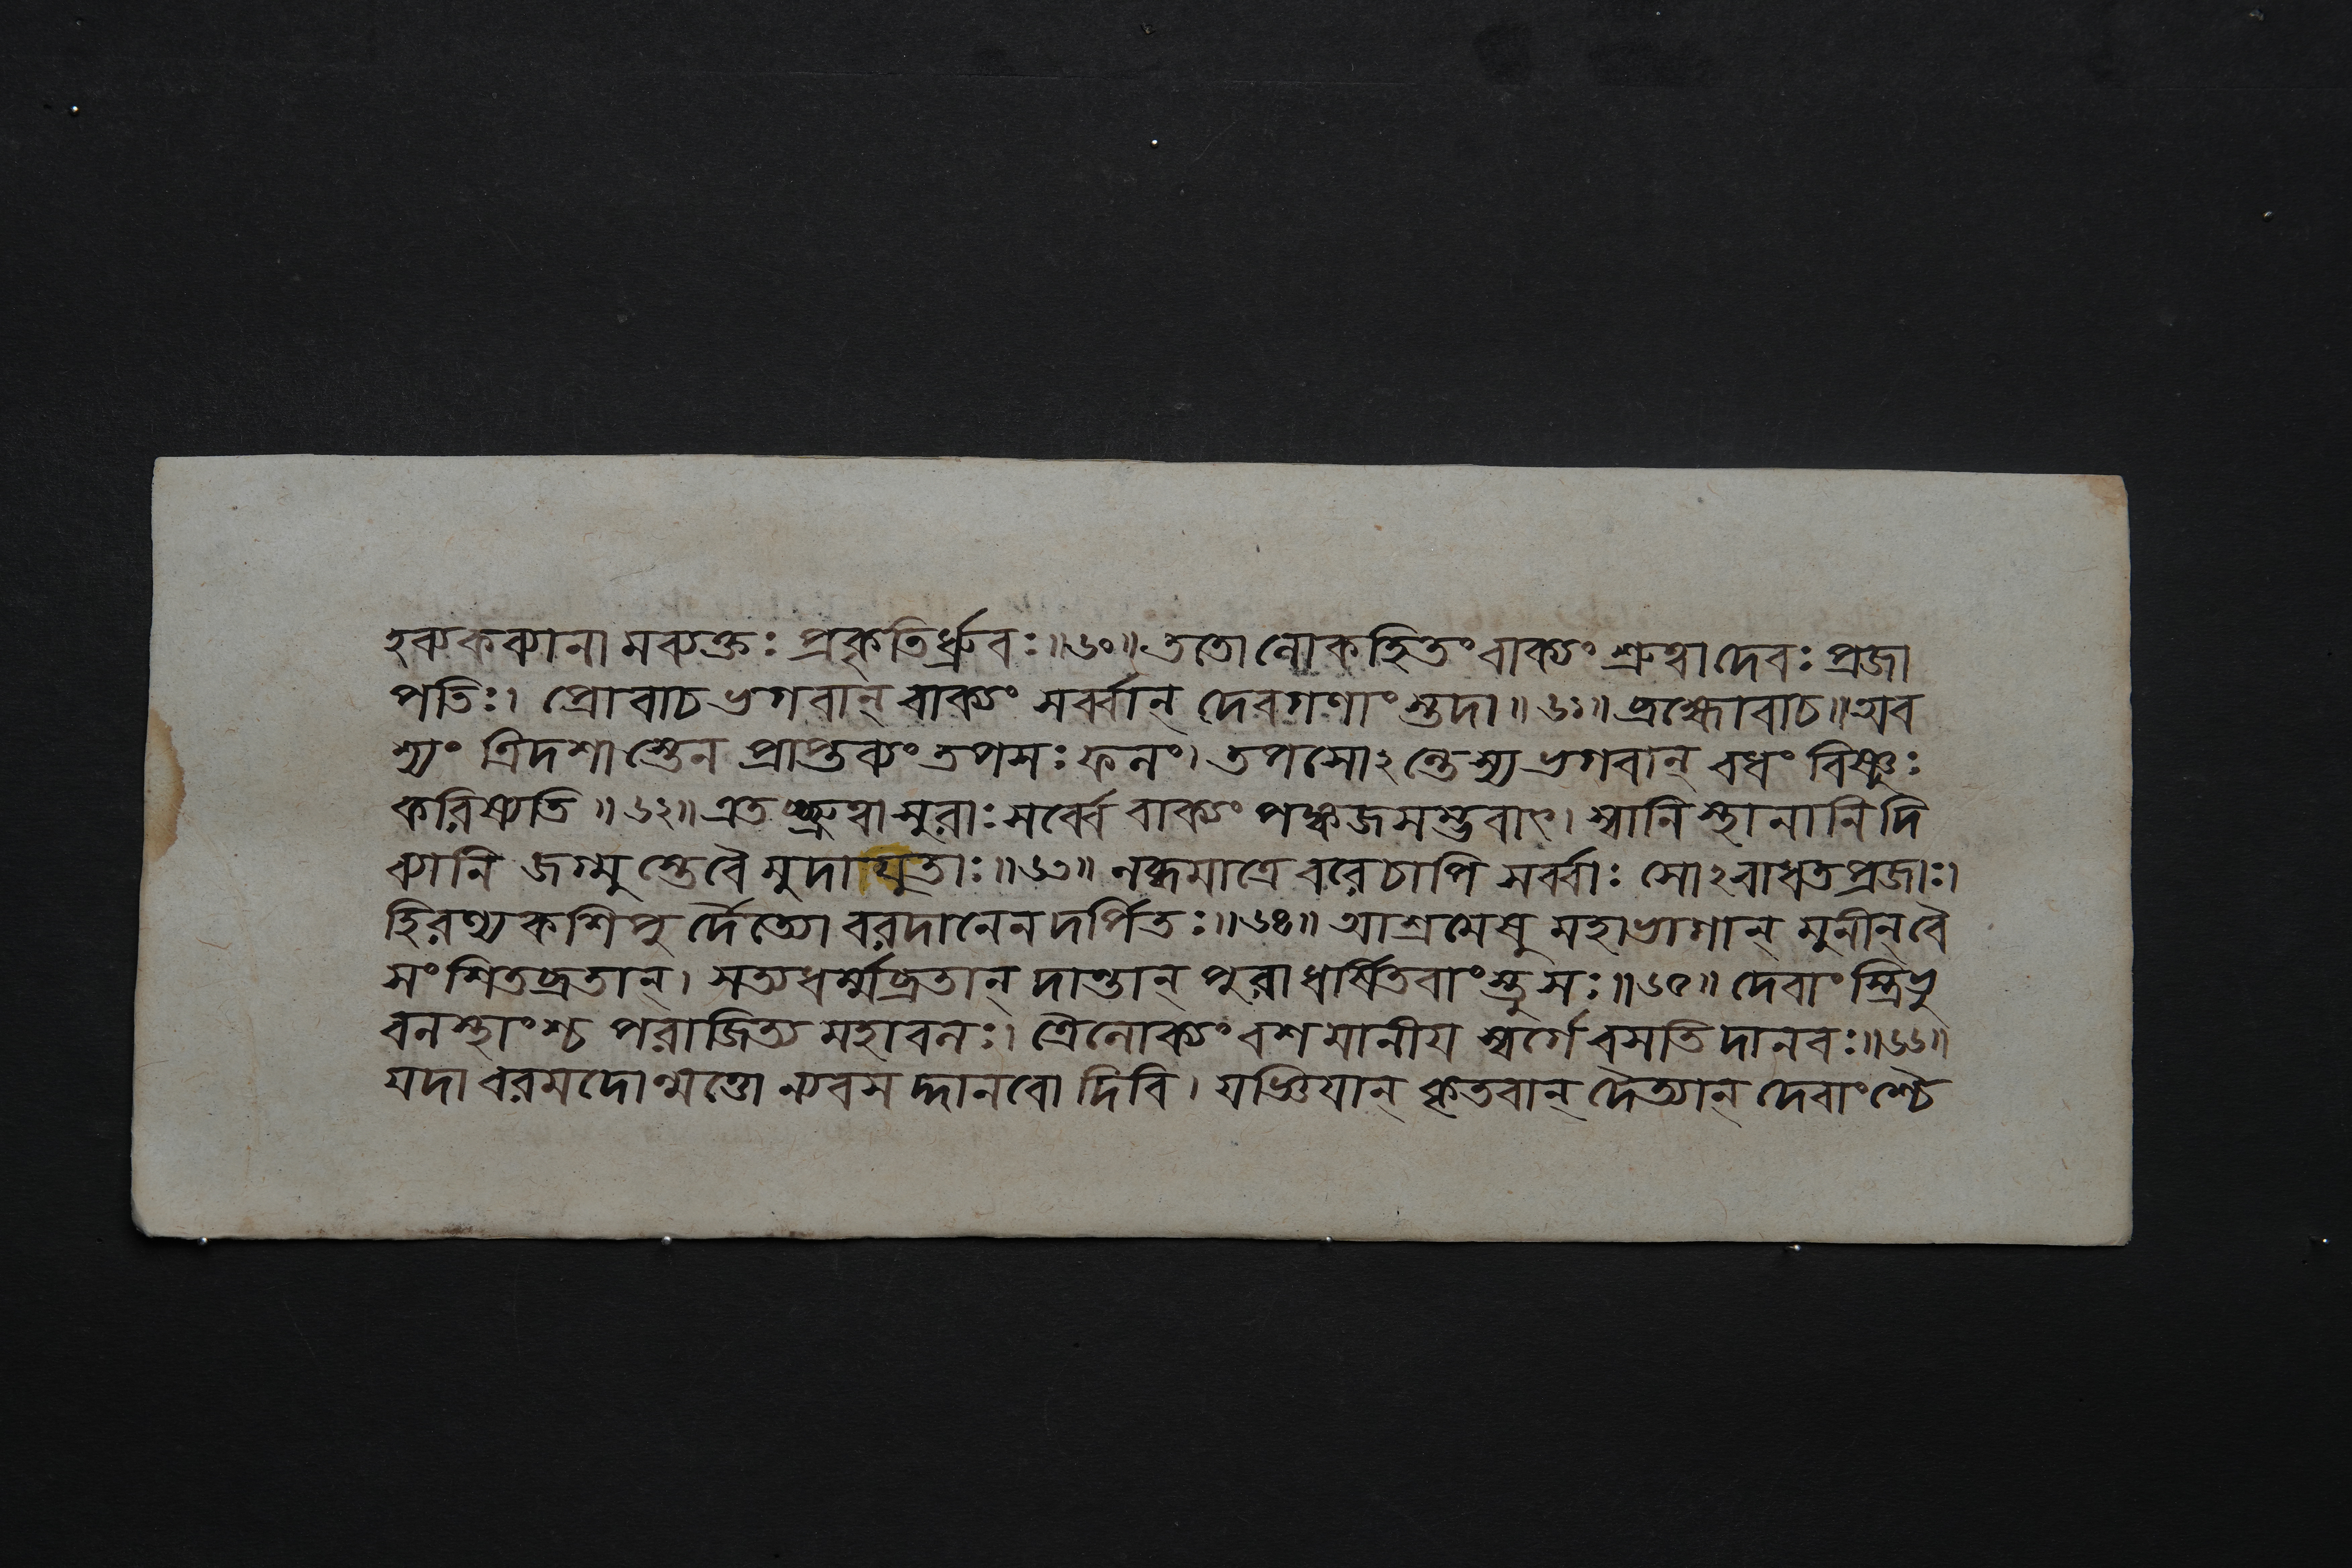 হব্যকব্যানামব্যক্তঃ প্রকৃতির্ধ্রুবঃ॥৬০॥ ততো লোকহিতং বাক্যং শ্রুত্বা দেবঃ প্রজা
পতিঃ। প্রোবাচ ভগবান্ বাক্যং সর্ব্বান্ দেবগণাংস্তদা॥৬১॥ ব্রহ্মোবাচ॥ অব
শ্যং ত্রিদশাস্তেন প্রাপ্তব্যং তপসঃ ফলং। তপসোঽন্তেস্য ভগবান্ বধং বিষ্ণুঃ
করিষ্যতি॥৬২॥ এতচ্ছ্রুত্বা সুরাঃ সর্ব্বে বাক্যং পঙ্কজসম্ভবাৎ। স্বানি স্থানানি দি
ব্যানি জগ্মুস্তে বৈ মুদাযুতাঃ॥৬৩॥ লব্ধমাত্রে বরে চাপি সর্ব্বাঃ সোঽবাধত প্রজাঃ।
হিরণ্যকশিপুর্দৈত্যো বরদানেন দর্পিতঃ॥৬৪॥ আশ্রমেষু মহাভাগান্ মুনীন্ বৈ
সংশিতব্রতান্। সত্যধর্ম্মব্রতান্ দান্তান্ পুরা ধর্ষিতবাংস্তু সঃ॥৬৫॥ দেবাংস্ত্রিভু
বনস্থাংশ্চ পরাজিত্য মহাবলঃ। ত্রৈলোক্যং বশমানীয় স্বর্গে বসতি দানবঃ॥৬৬॥
যদা বরমদোন্মত্তো ন্যবসদ্দানবো দিবি। যজ্ঞিয়ান্ কৃতবান্ দৈত্যান্ দেবাংশ্চৈ